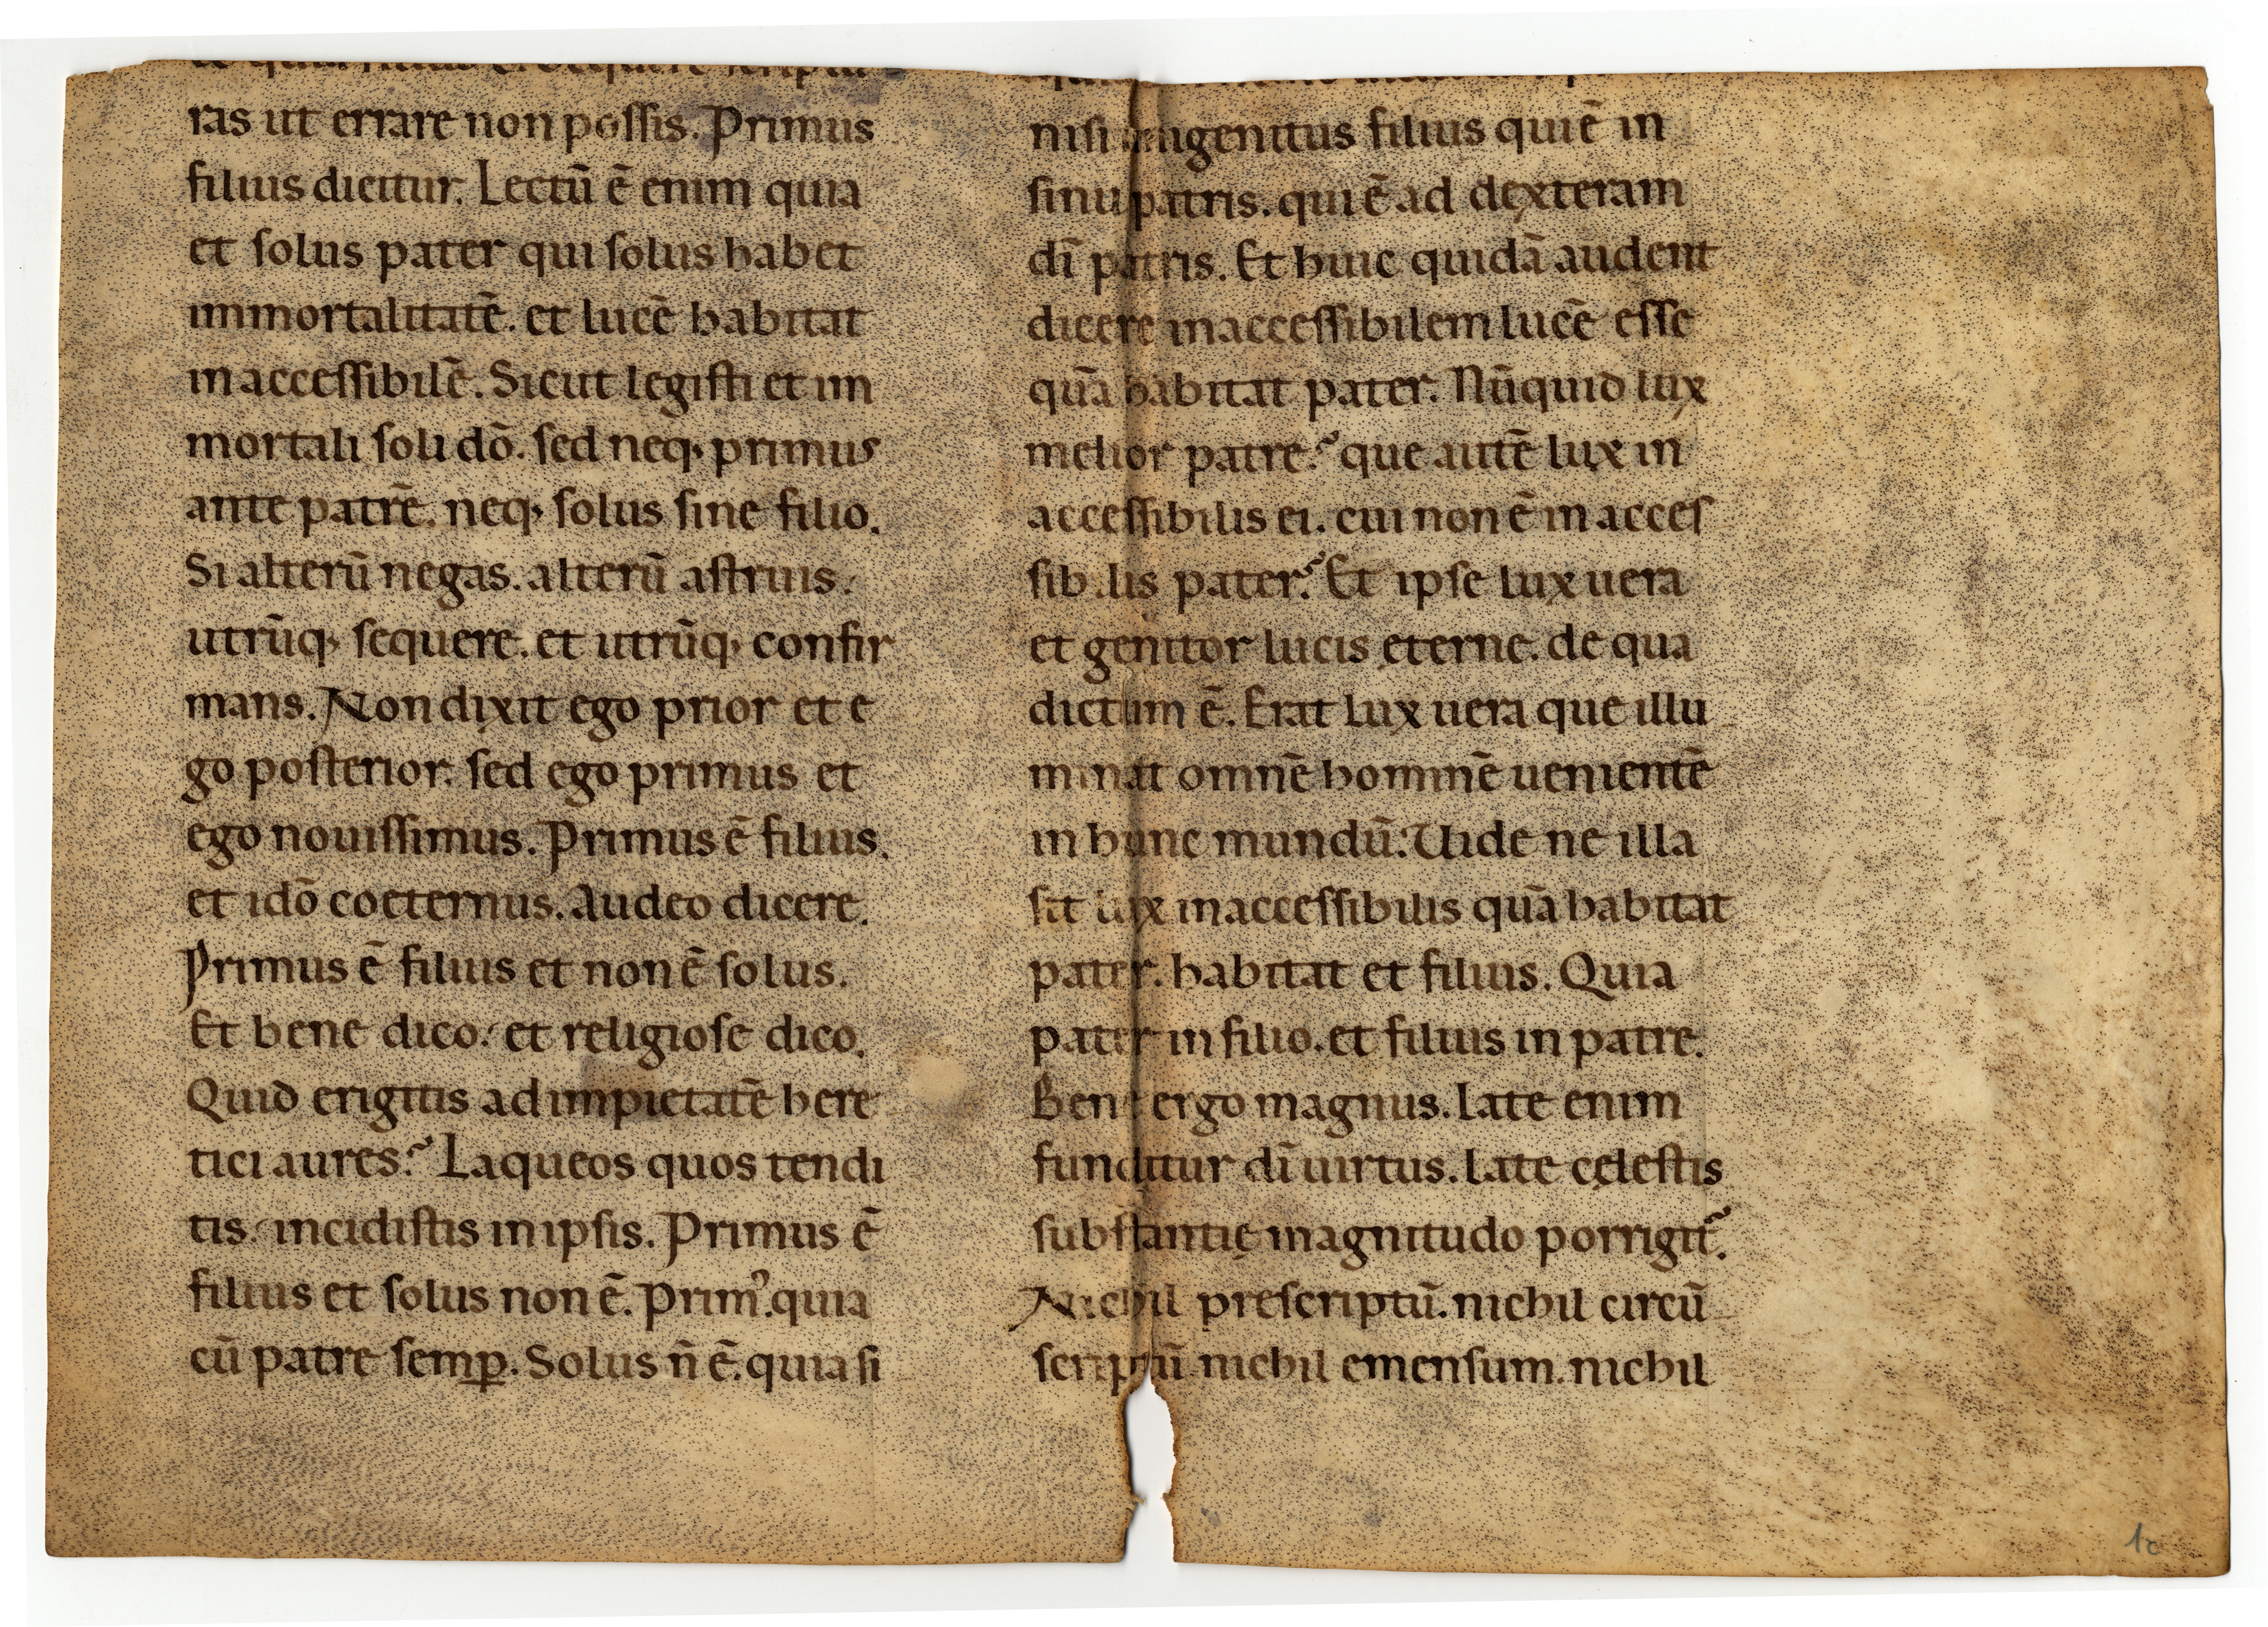 ras ut errare non possis. Primus
filius dicitur. Lectū ē enim quia
et solus pater qui solus habet
immortalitatē. et lucē habitat
inaccessibilē. Sicut legisti et im
mortali soli dō. sed neq; primus
ante patrē. neq; solus sine filio.
Si alterū negas. alterū astruis.
utrūq; sequere. et utrūq; confir
mans. Non dixit ego prior et e
go posterior. sed ego primus et
ego nouissimus. Primus ē filius.
et idō coeternus. Audeo dicere.
Primus ē filius et non ē solus.
Et bene dico. et religiose dico.
Quid erigitis ad impietatē here
tici aures? Laqueos quos tendi
tis. incidistis in ipsis. Primus ē
filius et solus non ē. Primꝰ. quia
cū patre semꝑ. Solus n̄ ē. quia si
nisi unigenitus filius qui ē in
sinu patris. qui ē ad dexteram
dī patris. Et huic quidā audent
dicere inaccessibilem lucē esse
quā habitat pater. Nūquid lux
melior patre? que autē lux in
accessibilis ei. cui non ē in acces
sibilis pater? Et ipse lux uera
et genitor lucis eterne. de qua
dictum ē. Erat lux uera que illu
minat omnē hominē uenientē
in hunc mundū. Uide ne illa
sit lux inaccessibilis quā habitat
pater. habitat et filius. Quia
pater in filio. et filius in patre.
Bene ergo magnus. Late enim
funditur dī uirtus. Late cęlestis
substantię magnitudo porrigit᷑.
Nichil prescriptū. nichil circū
scriptū nichil emensum. nichil
1c